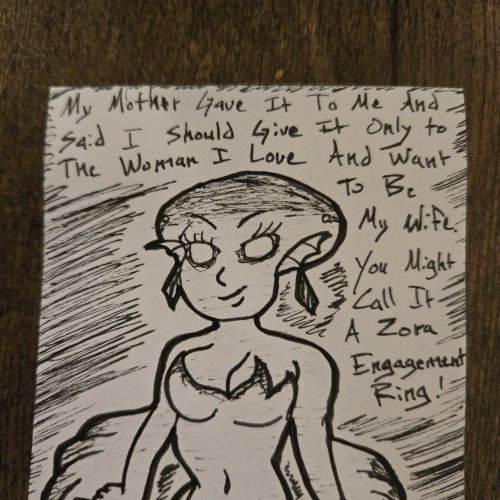 My Mother Gave It To Me And
Said I Should Give It Only to
The Woman I Love And Want
To Be
My Wife.
You Might
Call It
A Zora
Engagement
Ring!